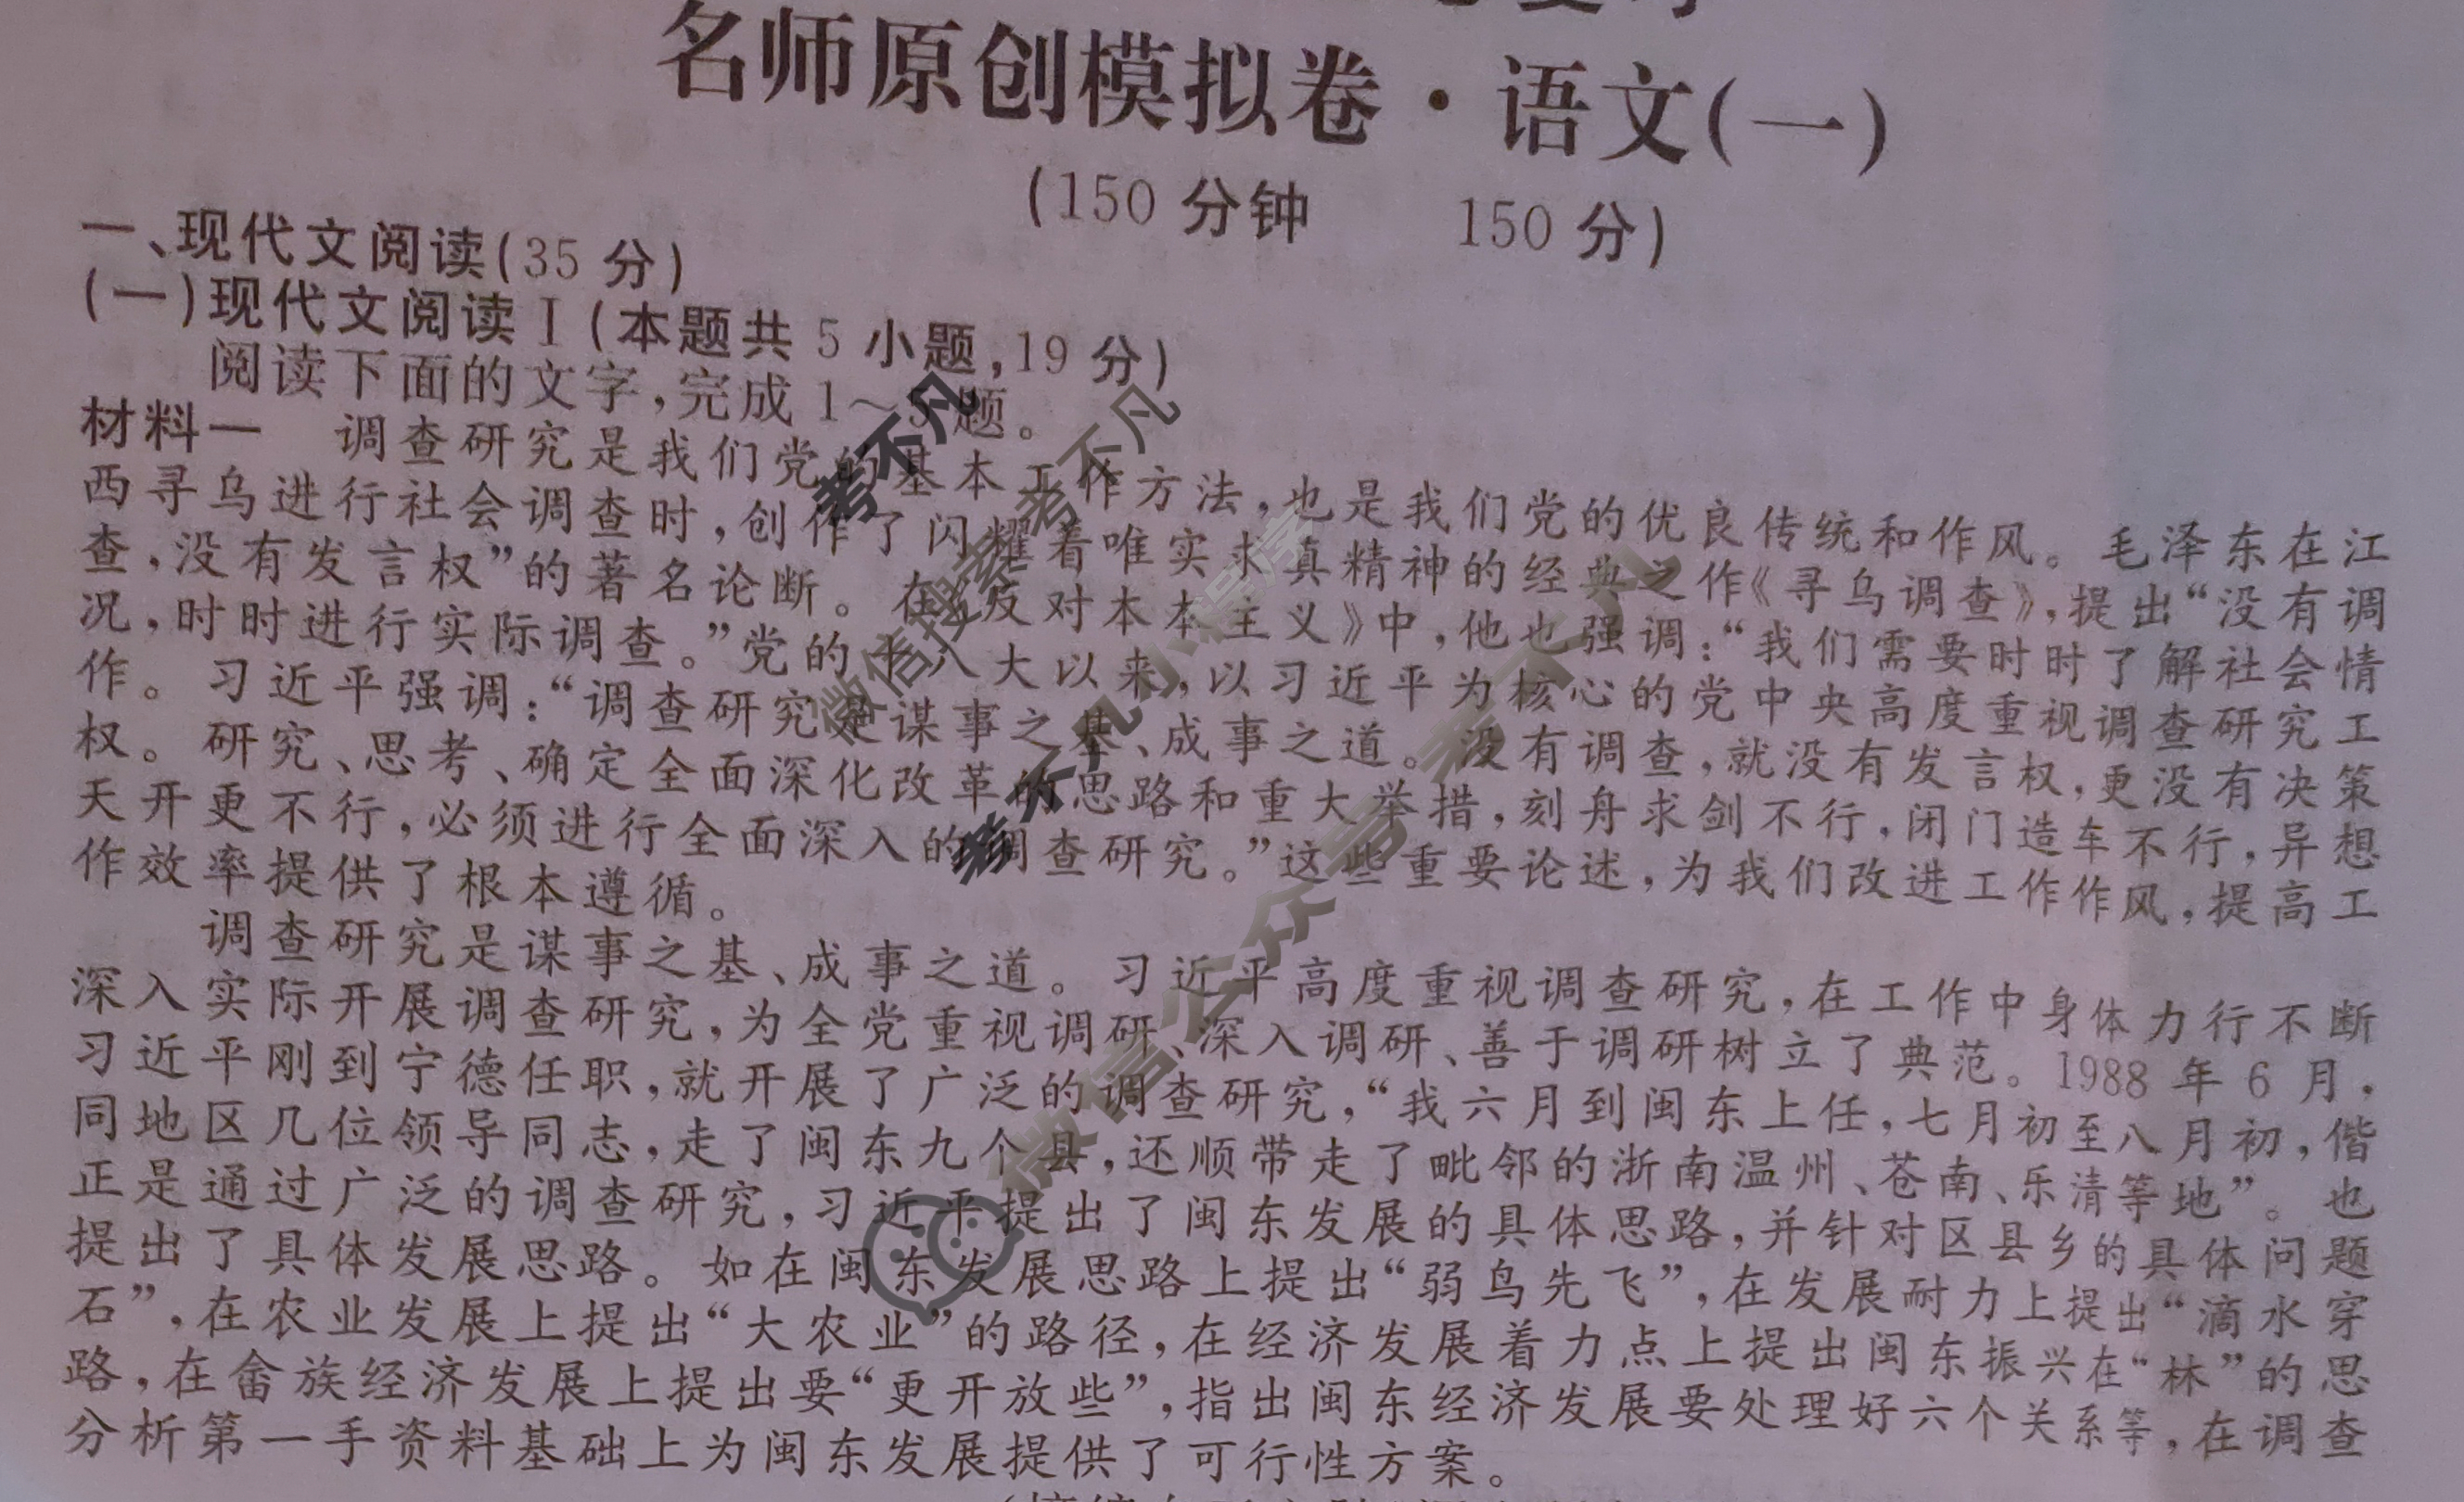 名师原创模拟卷·语文(一)
(150 分钟 150 分)
一、现代文阅读(35 分)
(一)现代文阅读Ⅰ(本题共 5 小题,19 分)
阅读下面的文字,完成 1～5 题。
材料一 调查研究是我们党的基本工作方法,也是我们党的优良传统和作风。毛泽东在江
西寻乌进行社会调查时,创作了闪耀着唯实求真精神的经典之作《寻乌调查》,提出“没有调
查,没有发言权”的著名论断。在《反对本本主义》中,他也强调:“我们需要时时了解社会情
况,时时进行实际调查。”党的十八大以来,以习近平为核心的党中央高度重视调查研究工
作。习近平强调:“调查研究是谋事之基、成事之道。没有调查,就没有发言权,更没有决策
权。研究、思考、确定全面深化改革的思路和重大举措,刻舟求剑不行,闭门造车不行,异想
天开更不行,必须进行全面深入的调查研究。”这些重要论述,为我们改进工作作风,提高工
作效率提供了根本遵循。
调查研究是谋事之基、成事之道。习近平高度重视调查研究,在工作中身体力行不断
深入实际开展调查研究,为全党重视调研、深入调研、善于调研树立了典范。1988 年 6 月,
习近平刚到宁德任职,就开展了广泛的调查研究,“我六月到闽东上任,七月初至八月初,偕
同地区几位领导同志,走了闽东九个县,还顺带走了毗邻的浙南温州、苍南、乐清等地”。也
正是通过广泛的调查研究,习近平提出了闽东发展的具体思路,并针对区县乡的具体问题
提出了具体发展思路。如在闽东发展思路上提出“弱鸟先飞”,在发展耐力上提出“滴水穿
石”,在农业发展上提出“大农业”的路径,在经济发展着力点上提出闽东振兴在“林”的思
路,在畲族经济发展上提出要“更开放些”,指出闽东经济发展要处理好六个关系等,在调查
分析第一手资料基础上为闽东发展提供了可行性方案。
考不凡
考不凡
微信搜索
考不凡小程序
微信公众号